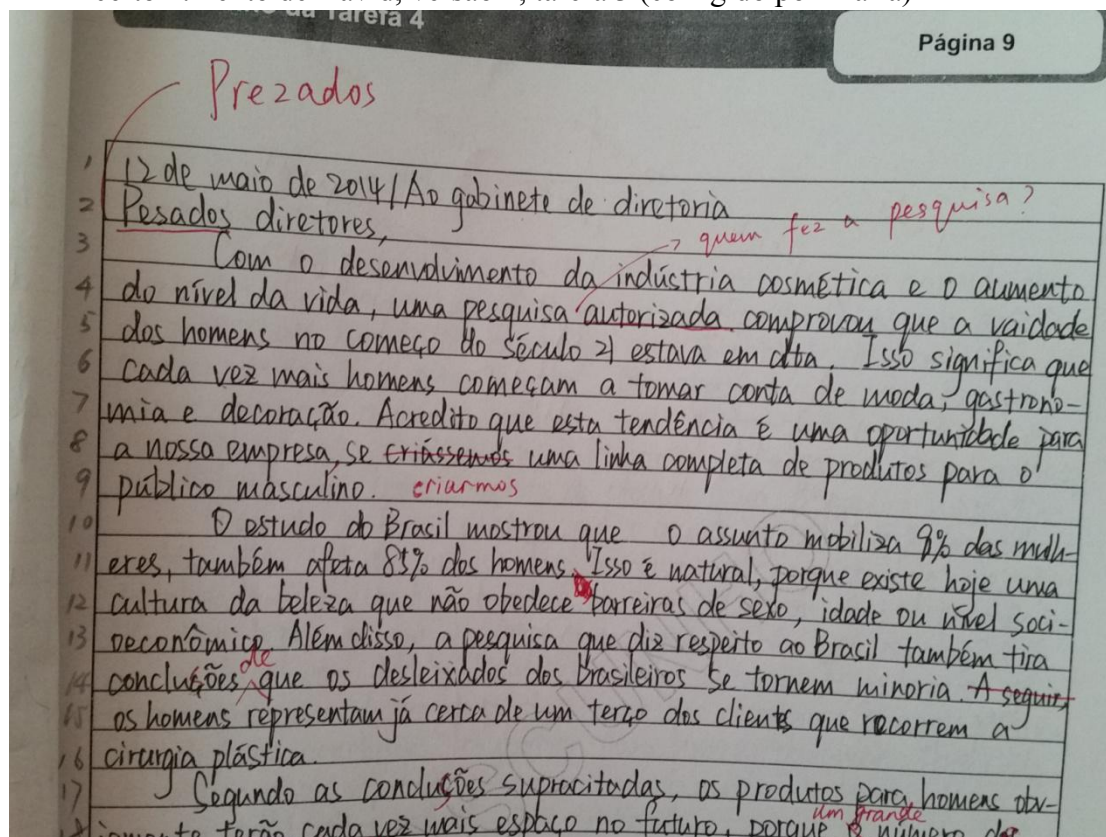 da Tarefa 4
Página 9
Prezados
1 12 de maio de 2014/Ao gabinete de diretoria
2 Pesados diretores,
quem fez a pesquisa?
3 Com o desenvolvimento da indústria cosmética e o aumento
4 do nível da vida, uma pesquisa autorizada comprovou que a vaidade
5 dos homens no começo do século 21 estava em alta. Isso significa que
6 cada vez mais homens começam a tomar conta de moda, gastrono-
7 mia e decoração. Acredito que esta tendência é uma oportunidade para
8 a nossa empresa, se criássemos uma linha completa de produtos para o
9 público masculino. criarmos
10 O estudo do Brasil mostrou que o assunto mobiliza 9% das mulh-
11 eres, também afeta 85% dos homens. Isso é natural, porque existe hoje uma
12 cultura da beleza que não obedece barreiras de sexo, idade ou nível soci-
13 oeconômico. Além disso, a pesquisa que diz respeito ao Brasil também tira
de
14 conclusões que os desleixados dos brasileiros se tornem minoria. A seguir,
15 os homens representam já cerca de um terço dos clientes que recorrem a
16 cirurgia plástica.
17 Segundo as conclusões supracitadas, os produtos para homens obv-
um grande
terão cada vez mais espaço no futuro, porque número